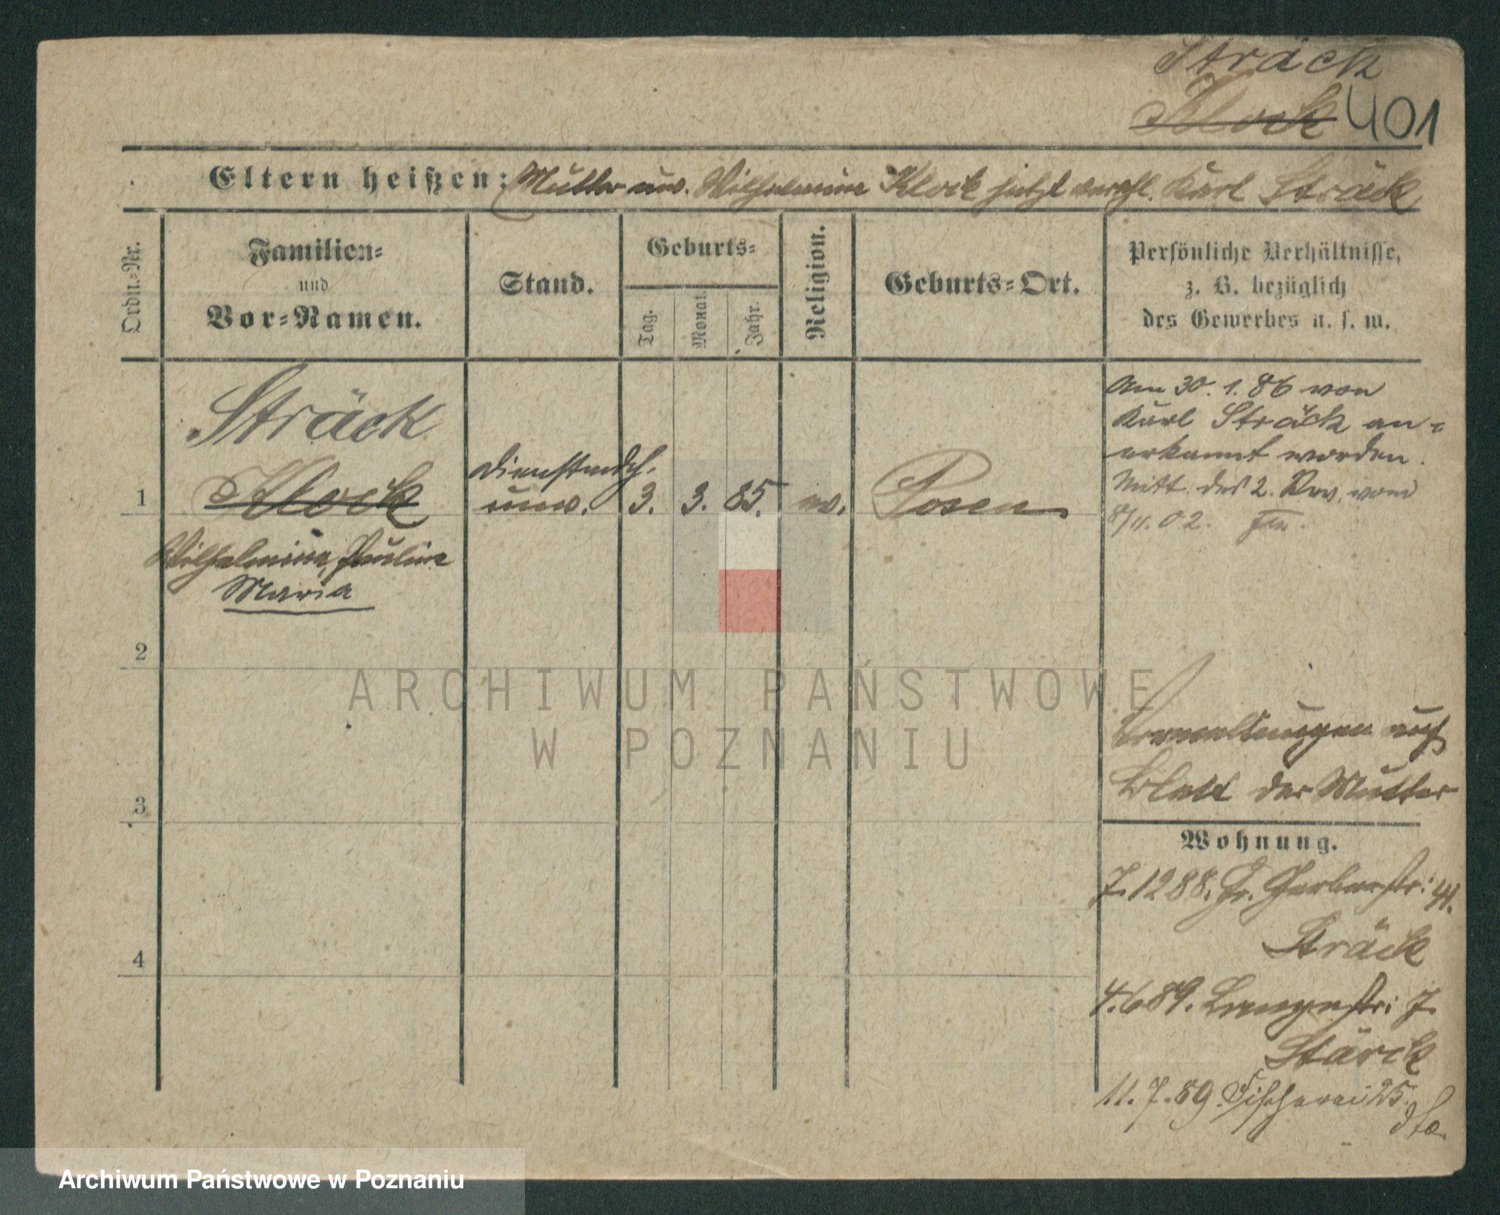 Sträck
Klock 401
Eltern heißen: Mutter unv. Wilhelmine Klock jetzt verehl. Karl Sträck
Ordn.-Nr.
Familien-
und
Vor-Namen.
Stand.
Geburts-
Tag.
Monat.
Jahr.
Religion.
Geburts-Ort.
Persönliche Verhältnisse,
z. B. bezüglich
des Gewerbes u. s. w.
Sträck
1 Klock
Wilhelmine, Pauline
Maria
Dienstmdch.
unv. 3. 3. 85. ev. Posen
Am 30. 1. 86 von
Karl Sträck an=
erkannt worden.
Mitt. des 2. Rev. vom
8/11. 02.
2
3
4
Bemerkungen auf
Blatt der Mutter
Wohnung.
7. 12 88. Gr. Gerberstr: 41.
Sträck
4. 6 89. Langestr: 7.
Stärck
11. 7. 89. Fischerei 25.
dto.
ARCHIWUM PAŃSTWOWE
W POZNANIU
Archiwum Państwowe w Poznaniu